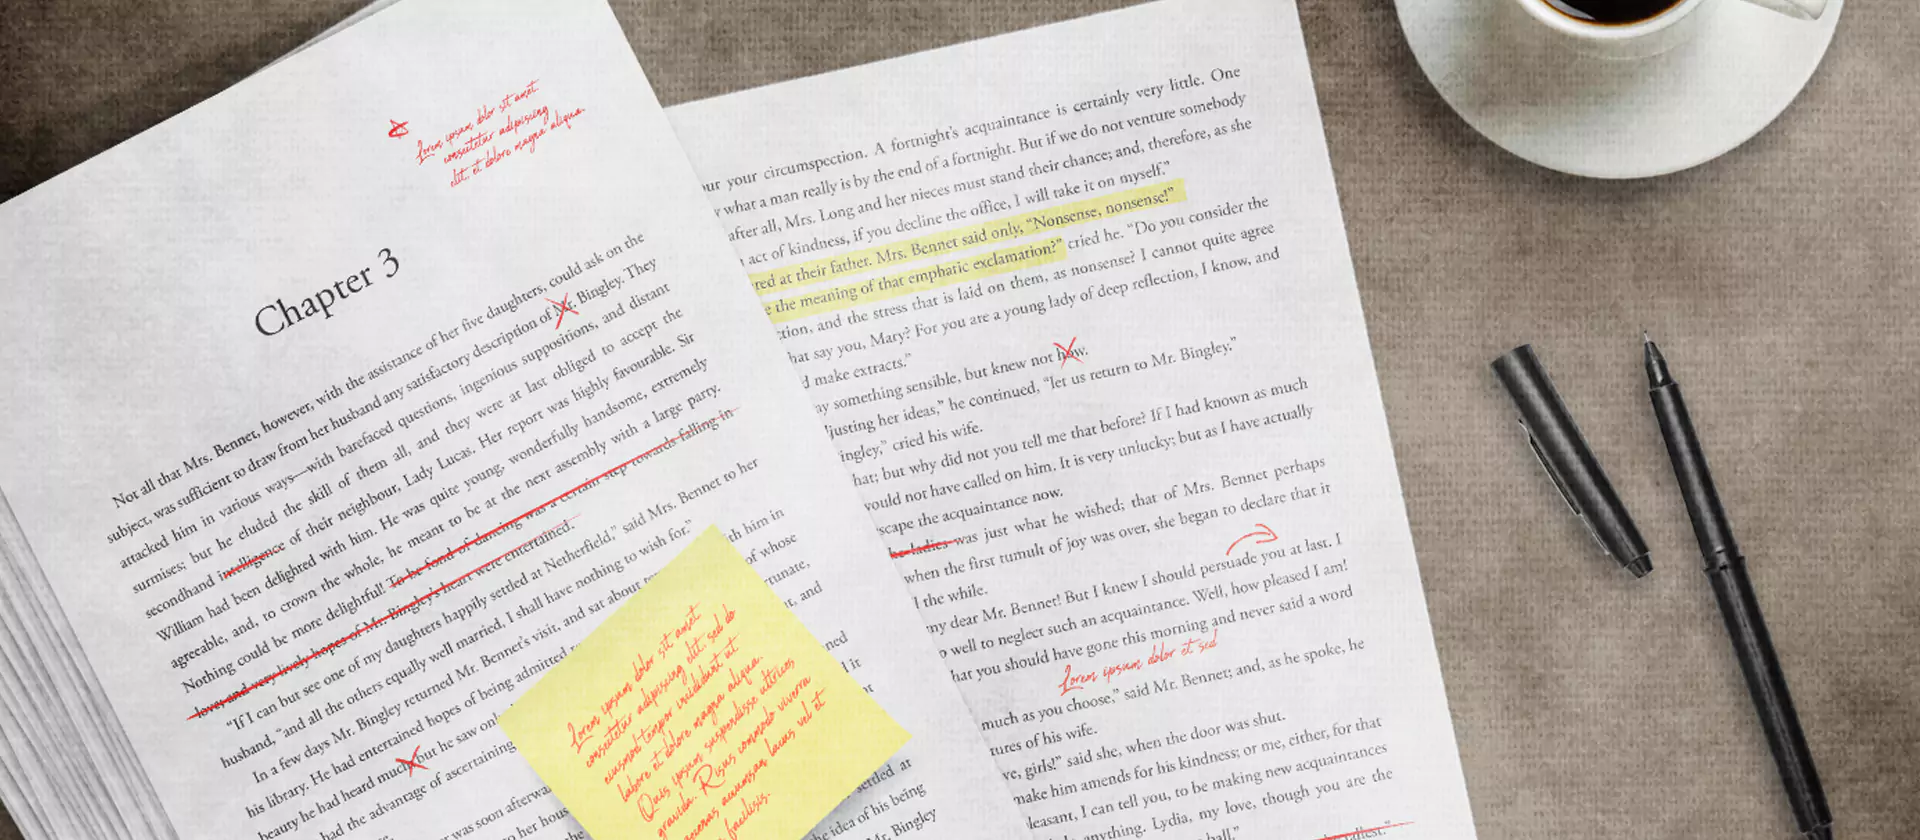 Lorem ipsum dolor sit amet
consectetur adipiscing
elit, et dolore magna aliqua.
Chapter 3
Not all that Mrs. Bennet, however, with the assistance of her five daughters, could ask on the
subject, was sufficient to draw from her husband any satisfactory description of Mr. Bingley. They
attacked him in various ways—with barefaced questions, ingenious suppositions, and distant
surmises; but he eluded the skill of them all, and they were at last obliged to accept the
secondhand intelligence of their neighbour, Lady Lucas. Her report was highly favourable. Sir
William had been delighted with him. He was quite young, wonderfully handsome, extremely
agreeable, and, to crown the whole, he meant to be at the next assembly with a large party.
Nothing could be more delightful! To be fond of dancing was a certain step towards falling in
love; and very lively hopes of Mr. Bingley's heart were entertained.
"If I can but see one of my daughters happily settled at Netherfield," said Mrs. Bennet to her
husband, "and all the others equally well married, I shall have nothing to wish for."
In a few days Mr. Bingley returned Mr. Bennet's visit, and sat about
his library. He had entertained hopes of being admitted
beauty he had heard much; but he saw only
had the advantage of ascertaining
was soon
th him in
of whose
and
Lorem ipsum dolor sit amet
consectetur adipiscing elit, sed do
eiusmod tempor incididunt ut
labore et dolore magna aliqua.
Quis ipsum suspendisse ultrices
gravida. Risus commodo viverra
accumsan lacus vel
facilisis.
at
the idea of his being
Mr. Bingley
ur your circumspection. A fortnight's acquaintance is certainly very little. One
what a man really is by the end of a fortnight. But if we do not venture somebody
after all, Mrs. Long and her nieces must stand their chance; and, therefore, as she
act of kindness, if you decline the office, I will take it on myself."
red at their father. Mrs. Bennet said only, "Nonsense, nonsense!"
e the meaning of that emphatic exclamation?" cried he. "Do you consider the
tion, and the stress that is laid on them, as nonsense? I cannot quite agree
hat say you, Mary? For you are a young lady of deep reflection, I know, and
d make extracts."
ay something sensible, but knew not how.
justing her ideas," he continued, "let us return to Mr. Bingley."
ingley," cried his wife.
hat; but why did not you tell me that before? If I had known as much
would not have called on him. It is very unlucky; but as I have actually
scape the acquaintance now.
he ladies was just what he wished; that of Mrs. Bennet perhaps
when the first tumult of joy was over, she began to declare that it
l the while.
my dear Mr. Bennet! But I knew I should persuade you at last. I
o well to neglect such an acquaintance. Well, how pleased I am!
hat you should have gone this morning and never said a word
Lorem ipsum dolor et sed
much as you choose," said Mr. Bennet; and, as he spoke, he
tures of his wife.
ve, girls!" said she, when the door was shut.
make him amends for his kindness; or me, either, for that
leasant, I can tell you, to be making new acquaintances
anything. Lydia, my love, though you are the
ball."
tallest."